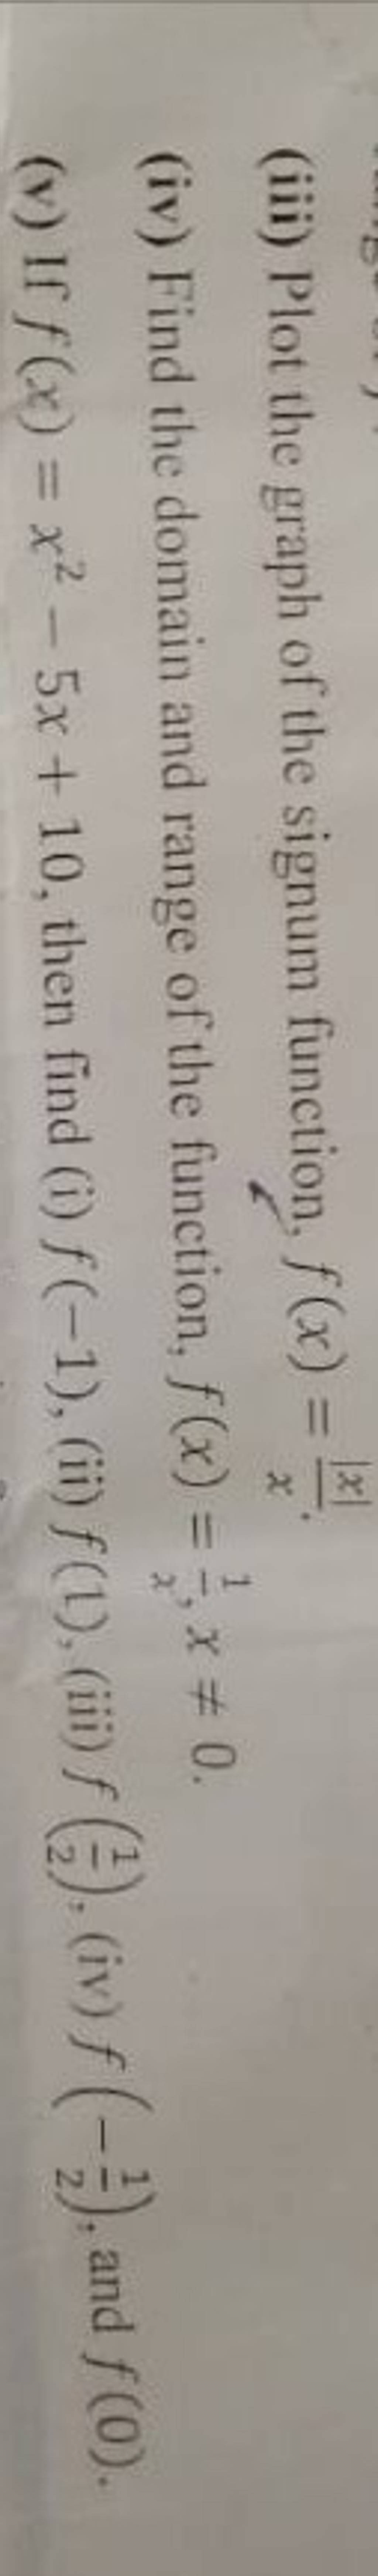 (iii) Plot the graph of the signum function, f(x) = |x|/x.
(iv) Find the domain and range of the function, f(x) = 1/x, x ≠ 0.
(v) If f(x) = x² − 5x + 10, then find (i) f(−1), (ii) f(1), (iii) f(1/2), (iv) f(−1/2), and f(0).